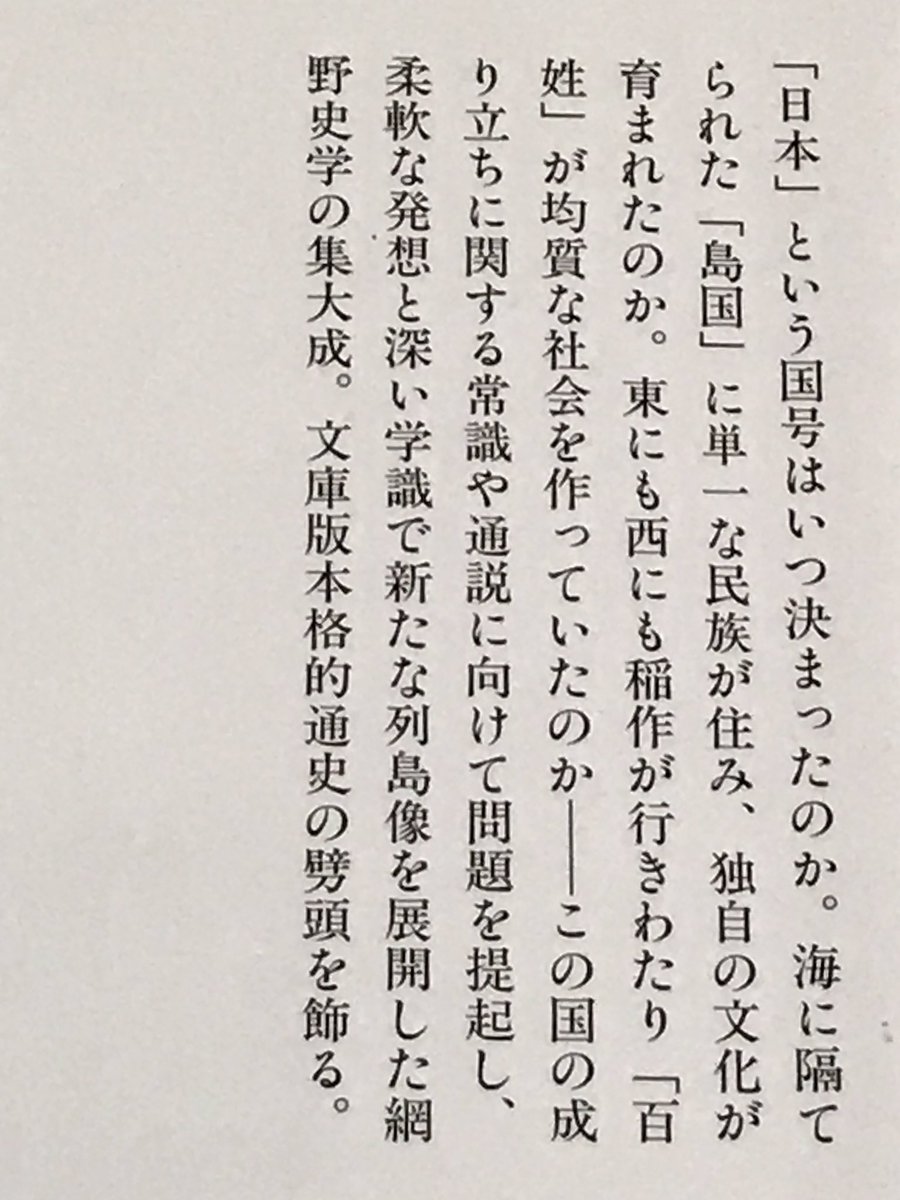 「日本」という国号はいつ決まったのか。海に隔て
られた「島国」に単一な民族が住み、独自の文化が
育まれたのか。東にも西にも稲作が行きわたり「百
姓」が均質な社会を作っていたのか——この国の成
り立ちに関する常識や通説に向けて問題を提起し、
柔軟な発想と深い学識で新たな列島像を展開した網
野史学の集大成。文庫版本格的通史の劈頭を飾る。